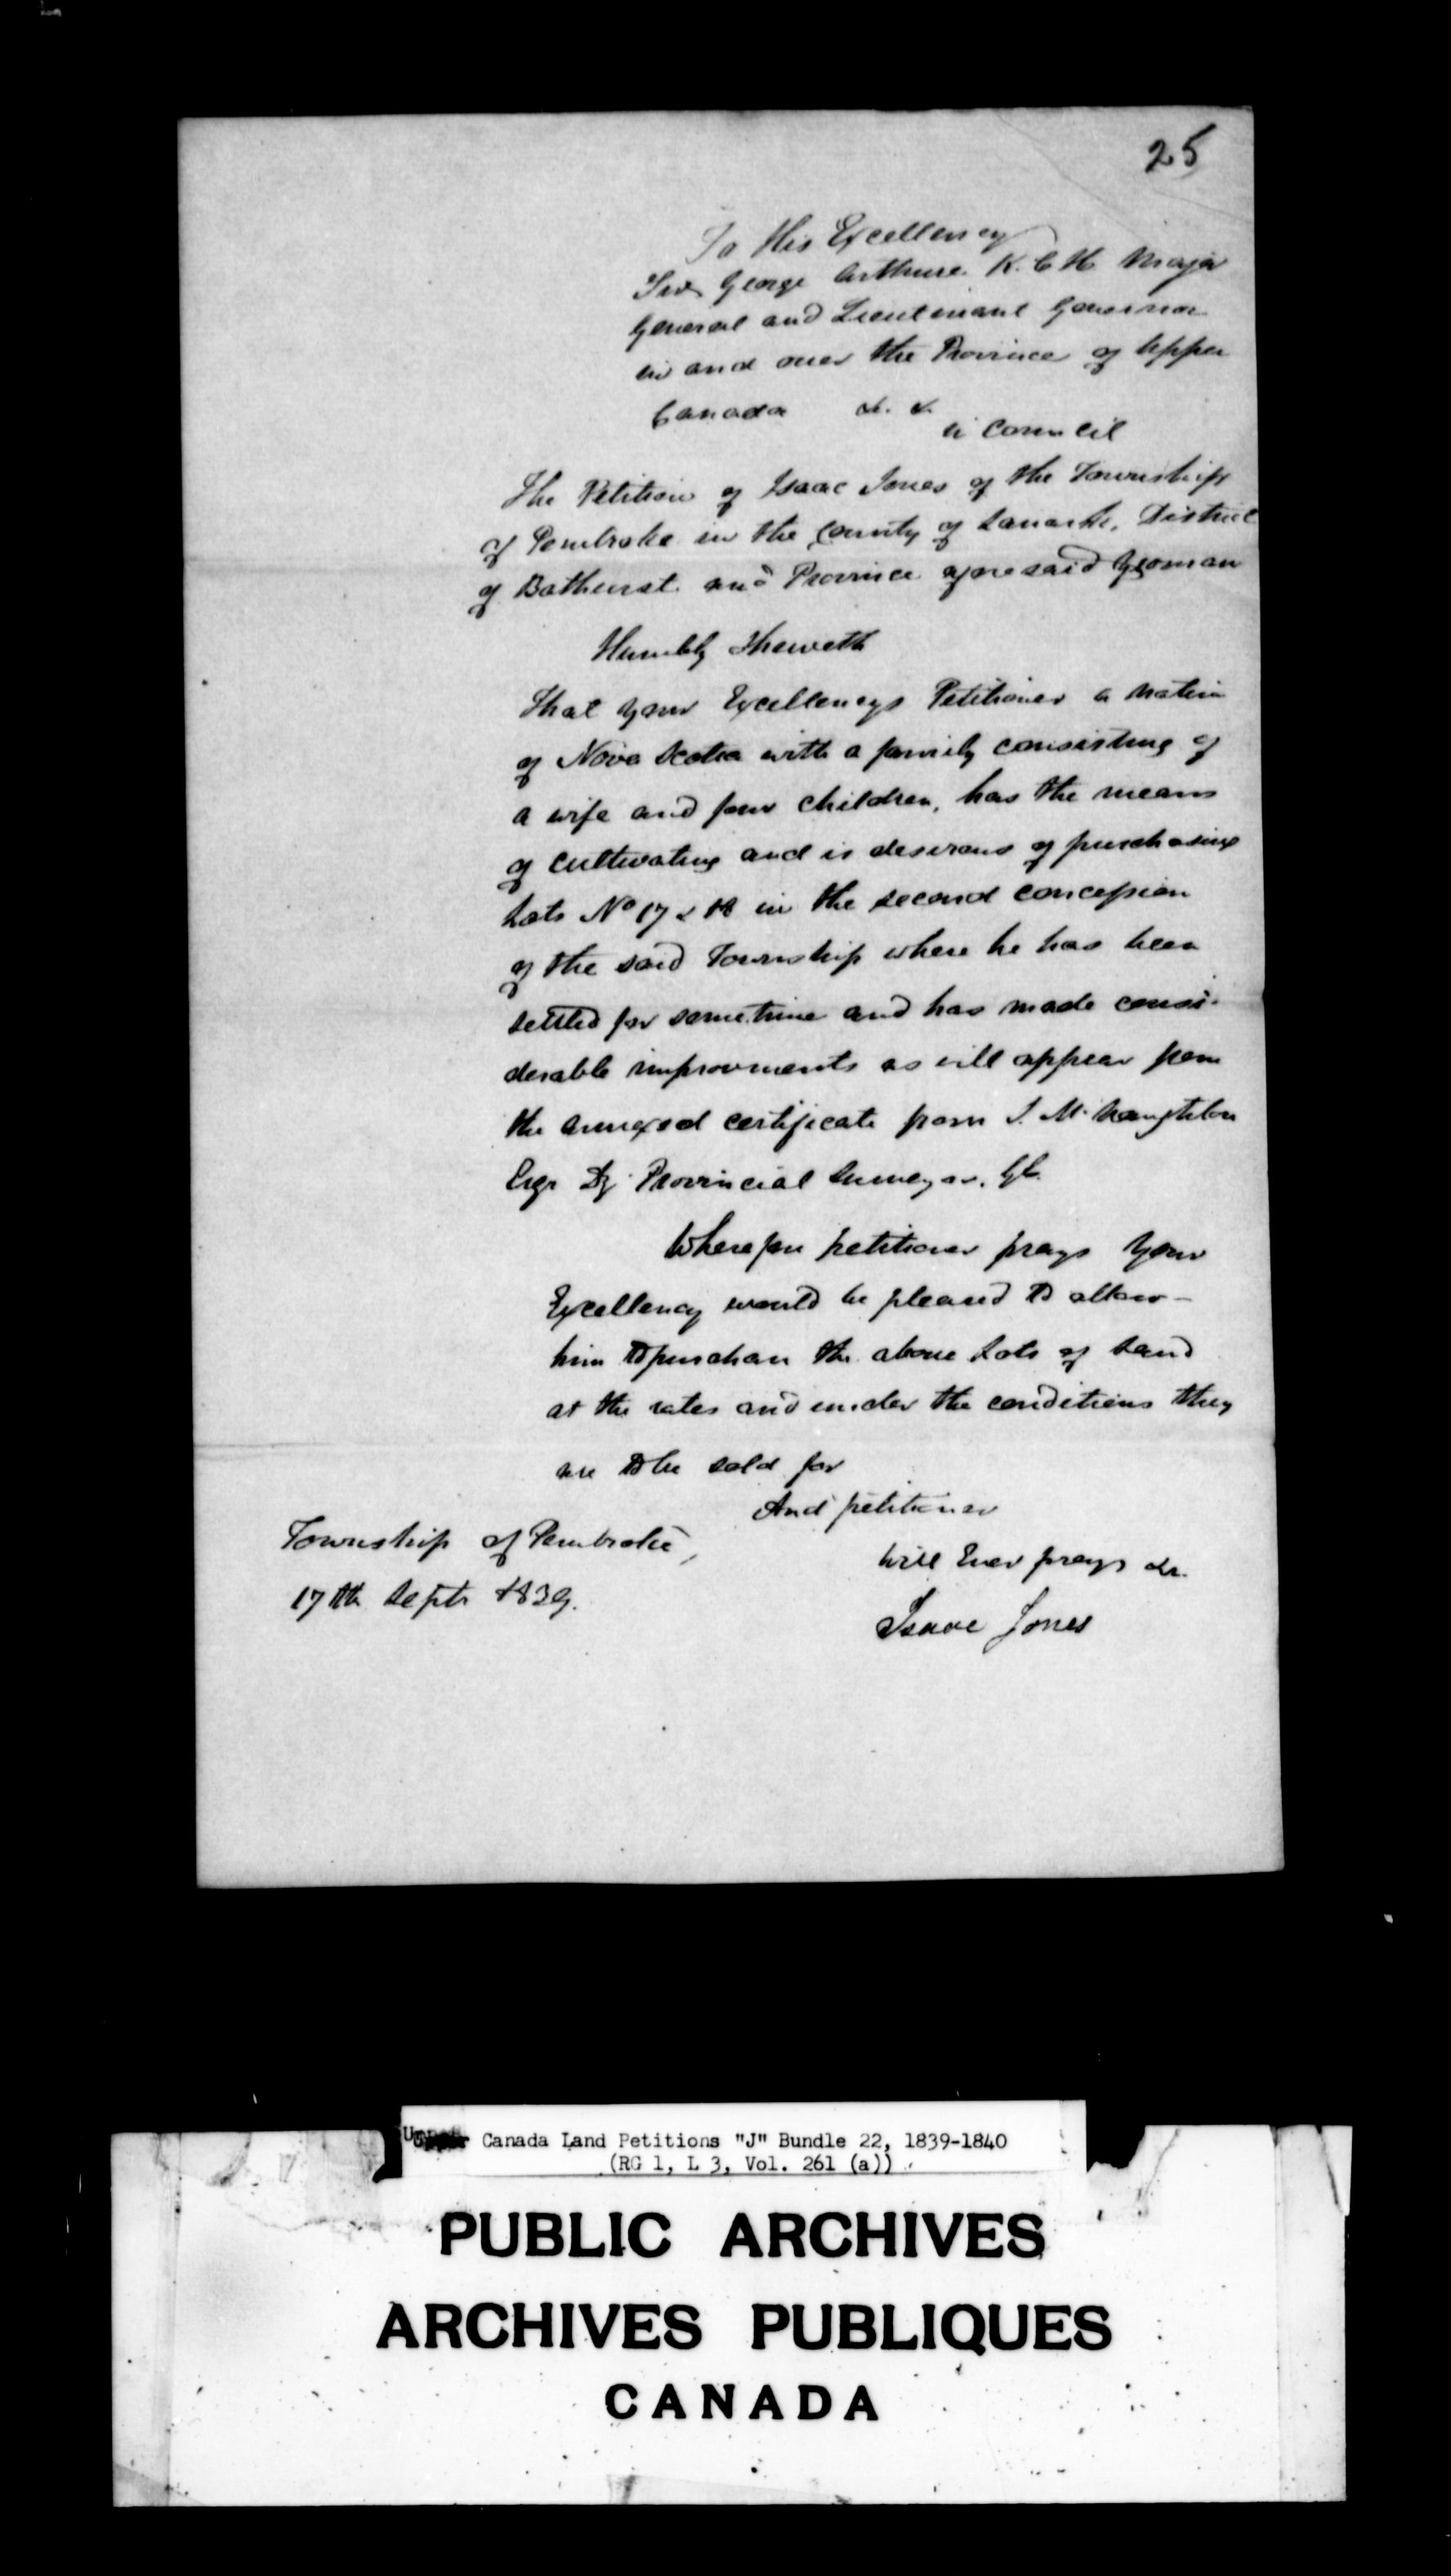 25
To His Excellency
Sir George Arthure K. C. H. Major
General and Lieutenant Governor
in and over the Province of Upper
Canada &. &.
in Council
The Petition of Isaac Jones of the Township
of Pembroke in the County of Lanark, District
of Bathurst and Province aforesaid Yeoman
Humbly Sheweth
That your Excellencys Petitioner a native
of Nova Scotia with a family consisting of
a wife and four children, has the means
of cultivating and is desirous of purchasing
Lots No 17 & 18 in the second concession
of the said Township where he has been
settled for sometime and has made consi-
derable improvments as will appear from
the annexed certificate from J. McNaughton
Esqr Dy Provincial Surveyor.
Wherefore petitioner prays Your
Excellency would be pleased to allow
him to purchase the above Lots of Land
at the rates and under the conditions they
are to be sold for
And petitioner
will Ever prays &c.
Isaac Jones
Township of Pembroke,
17th Septr 1839.
Canada Land Petitions "J" Bundle 22, 1839-1840
(RG 1, L 3, Vol. 261 (a))
PUBLIC ARCHIVES
ARCHIVES PUBLIQUES
CANADA